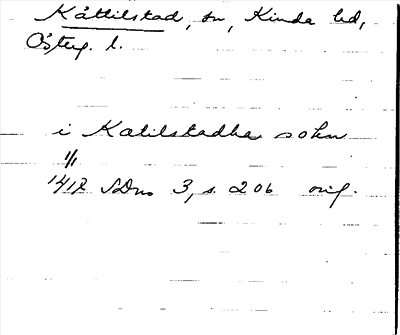 Kättilstad, sn, Kinda hd,
Österg. l.
i Katilstadha sokn
1/1
1417 SDns 3, s. 206 orig.